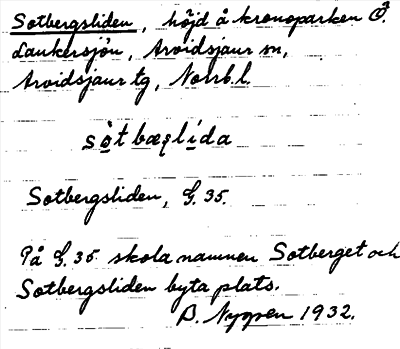 Sotbergsliden, höjd å kronoparken Ö.
Laukersjön, Arvidsjaur sn,
Arvidsjaur tg, Norrb. l.
sòtbæʂlìda
Sotbergsliden, G. 35.
På G. 35 skola namnen Sotberget och
Sotbergsliden byta plats.
B. Nygren 1932.